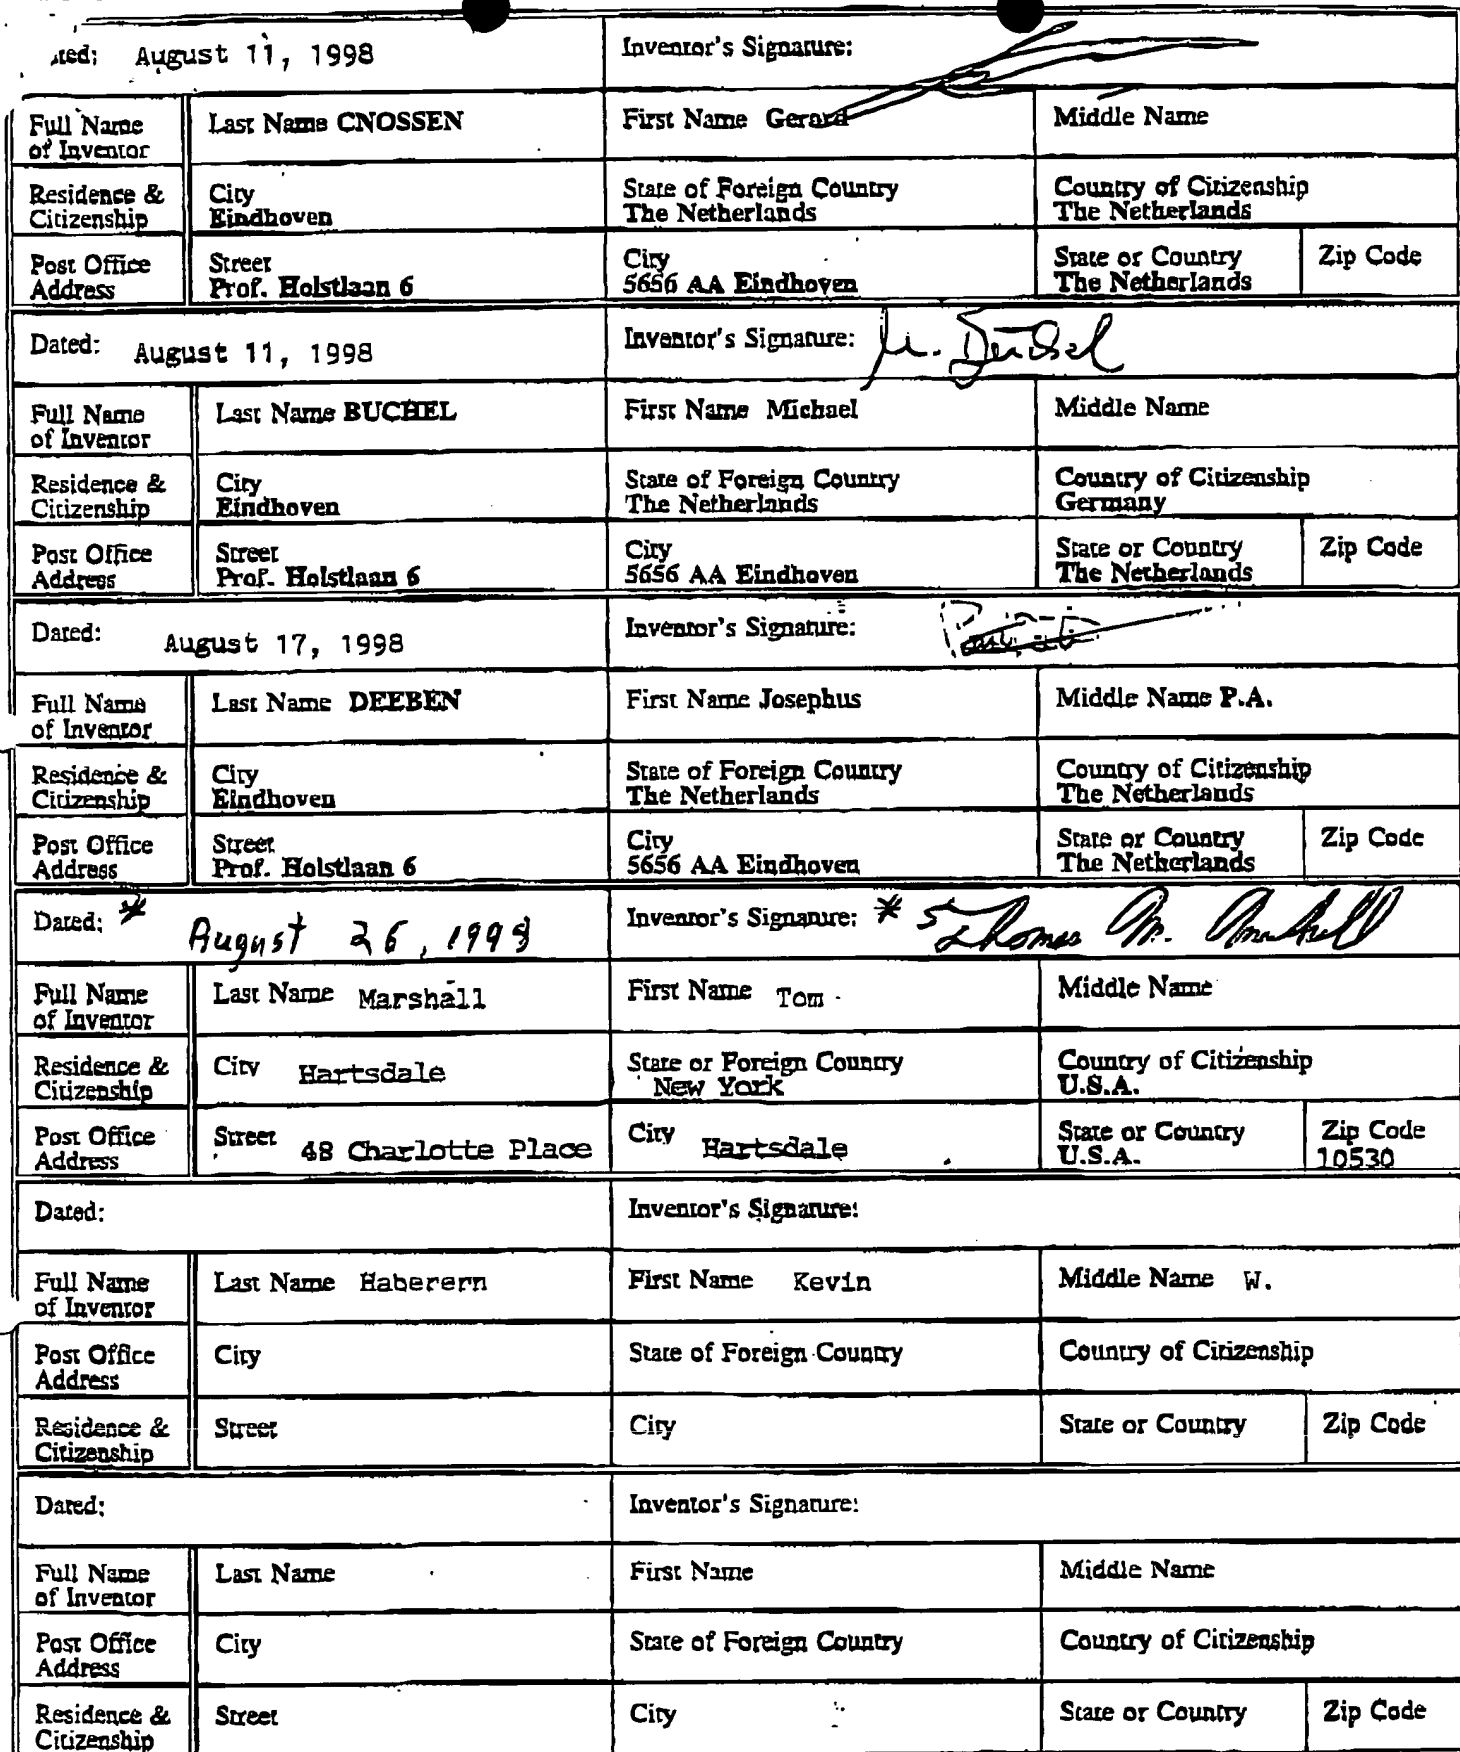 August 11, 1998
Inventor's Signature:
Full Name
of Inventor
Last Name CNOSSEN
First Name Gerard
Middle Name
Residence &
Citizenship
City
Eindhoven
State of Foreign Country
The Netherlands
Country of Citizenship
The Netherlands
Post Office
Address
Street
Prof. Holstlaan 6
City
5656 AA Eindhoven
State or Country
The Netherlands
Zip Code
Dated: August 11, 1998
Inventor's Signature:
Full Name
of Inventor
Last Name BUCHEL
First Name Michael
Middle Name
Residence &
Citizenship
City
Eindhoven
State of Foreign Country
The Netherlands
Country of Citizenship
Germany
Post Office
Address
Street
Prof. Holstlaan 6
City
5656 AA Eindhoven
State or Country
The Netherlands
Zip Code
Dated: August 17, 1998
Inventor's Signature:
Full Name
of Inventor
Last Name DEEBEN
First Name Josephus
Middle Name P.A.
Residence &
Citizenship
City
Eindhoven
State of Foreign Country
The Netherlands
Country of Citizenship
The Netherlands
Post Office
Address
Street
Prof. Holstlaan 6
City
5656 AA Eindhoven
State or Country
The Netherlands
Zip Code
Dated: * August 26, 1998
Inventor's Signature: * Thomas M. Marshall
Full Name
of Inventor
Last Name Marshall
First Name Tom
Middle Name
Residence &
Citizenship
City Hartsdale
State or Foreign Country
New York
Country of Citizenship
U.S.A.
Post Office
Address
Street 48 Charlotte Place
City Hartsdale
State or Country
U.S.A.
Zip Code
10530
Dated:
Inventor's Signature:
Full Name
of Inventor
Last Name Haberern
First Name Kevin
Middle Name W.
Post Office
Address
City
State of Foreign Country
Country of Citizenship
Residence &
Citizenship
Street
City
State or Country
Zip Code
Dated:
Inventor's Signature:
Full Name
of Inventor
Last Name
First Name
Middle Name
Post Office
Address
City
State of Foreign Country
Country of Citizenship
Residence &
Citizenship
Street
City
State or Country
Zip Code